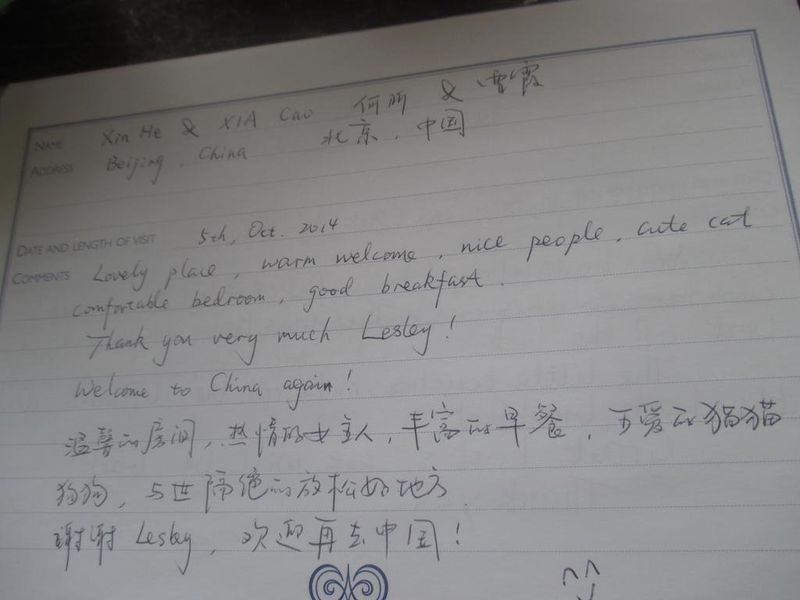 NAME Xin He & XIA Cao 何昕 & 曹霞
ADDRESS Beijing, China 北京, 中国
DATE AND LENGTH OF VISIT 5th, Oct. 2014
COMMENTS Lovely place, warm welcome, nice people, cute cat
comfortable bedroom, good breakfast.
Thank you very much Lesley!
Welcome to China again!
温馨的房间, 热情的女主人, 丰富的早餐, 可爱的猫猫
狗狗, 与世隔绝的放松好地方
谢谢 Lesley, 欢迎再去中国!